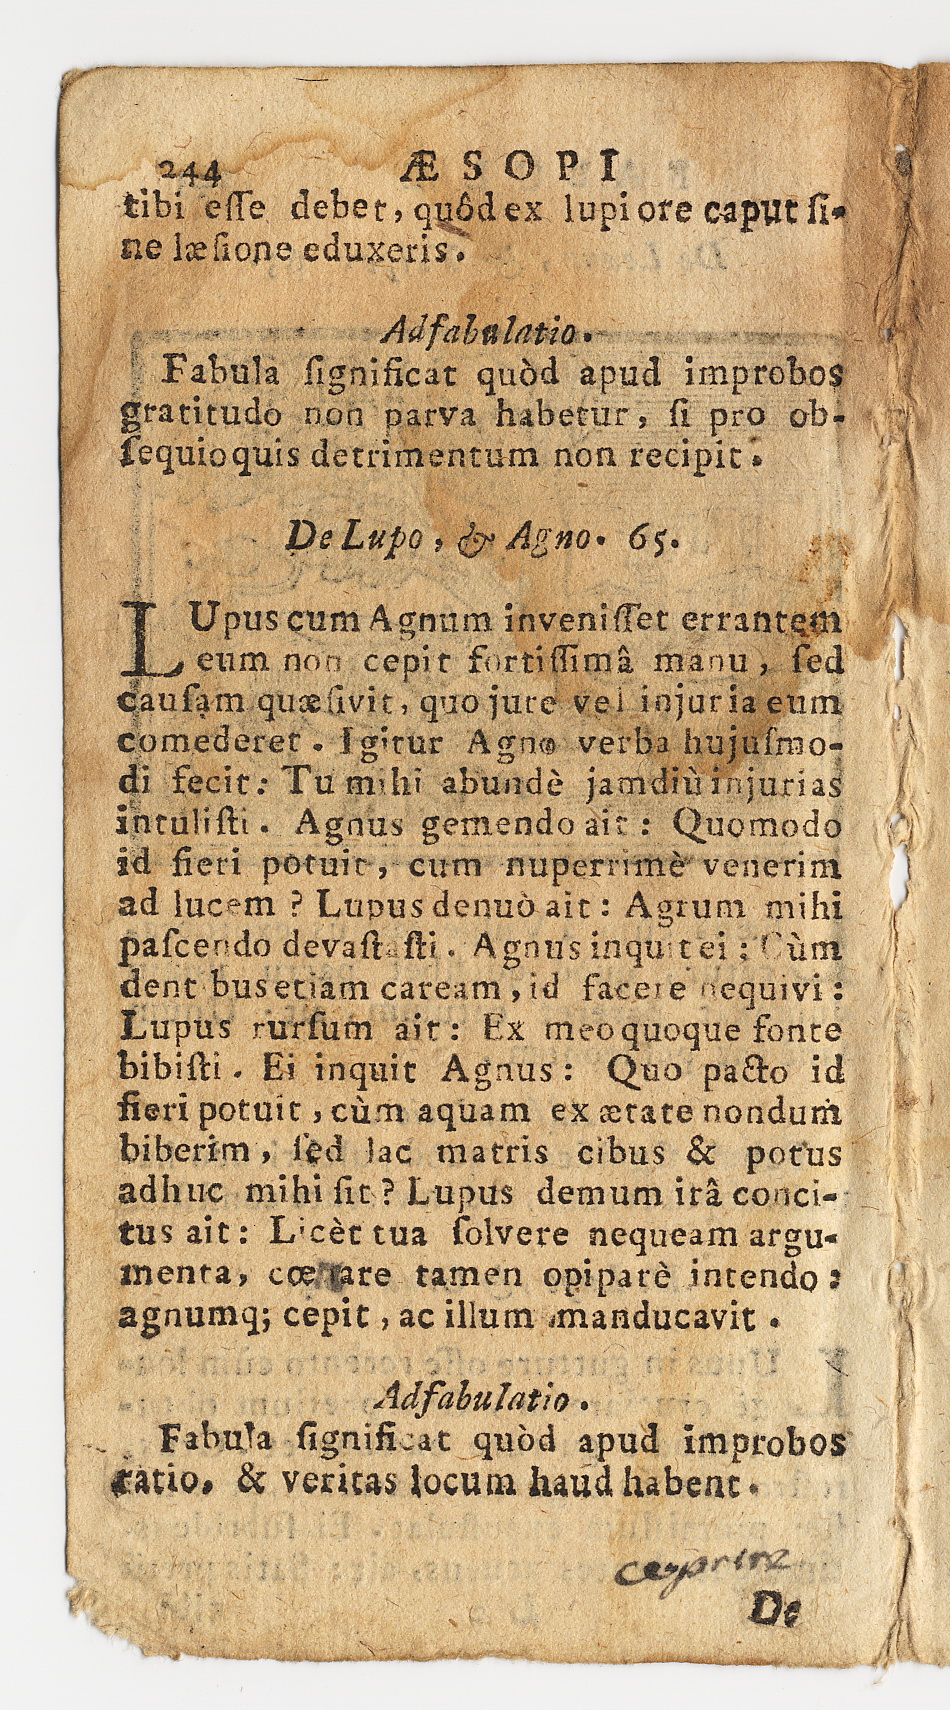 244 ÆSOPI
tibi eſſe debet, quôd ex lupi ore caput ſi-
ne læſione eduxeris.
Adfabulatio.
Fabula ſignificat quòd apud improbos
gratitudo non parva habetur, ſi pro ob-
ſequio quis detrimentum non recipit.
De Lupo, & Agno. 65.
LUpus cum Agnum inveniſſet errantem
eum non cepit fortiſſimâ manu, ſed
cauſam quæſivit, quo jure vel injuria eum
comederet. Igitur Agno verba hujuſmo-
di fecit: Tu mihi abundè jamdiù injurias
intuliſti. Agnus gemendo ait: Quomodo
id fieri potuit, cum nuperrimè venerim
ad lucem? Lupus denuò ait: Agrum mihi
paſcendo devaſtaſti. Agnus inquit ei: Cùm
dentibus etiam caream, id facere nequivi:
Lupus rurſum ait: Ex meo quoque fonte
bibiſti. Ei inquit Agnus: Quo pacto id
fieri potuit, cùm aquam ex ætate nondum
biberim, ſed lac matris cibus & potus
adhuc mihi ſit? Lupus demum irâ conci-
tus ait: Licèt tua ſolvere nequeam argu-
menta, cœnare tamen opiparè intendo:
agnumq; cepit, ac illum manducavit.
Adfabulatio.
Fabula ſignificat quòd apud improbos
ratio, & veritas locum haud habent.
De